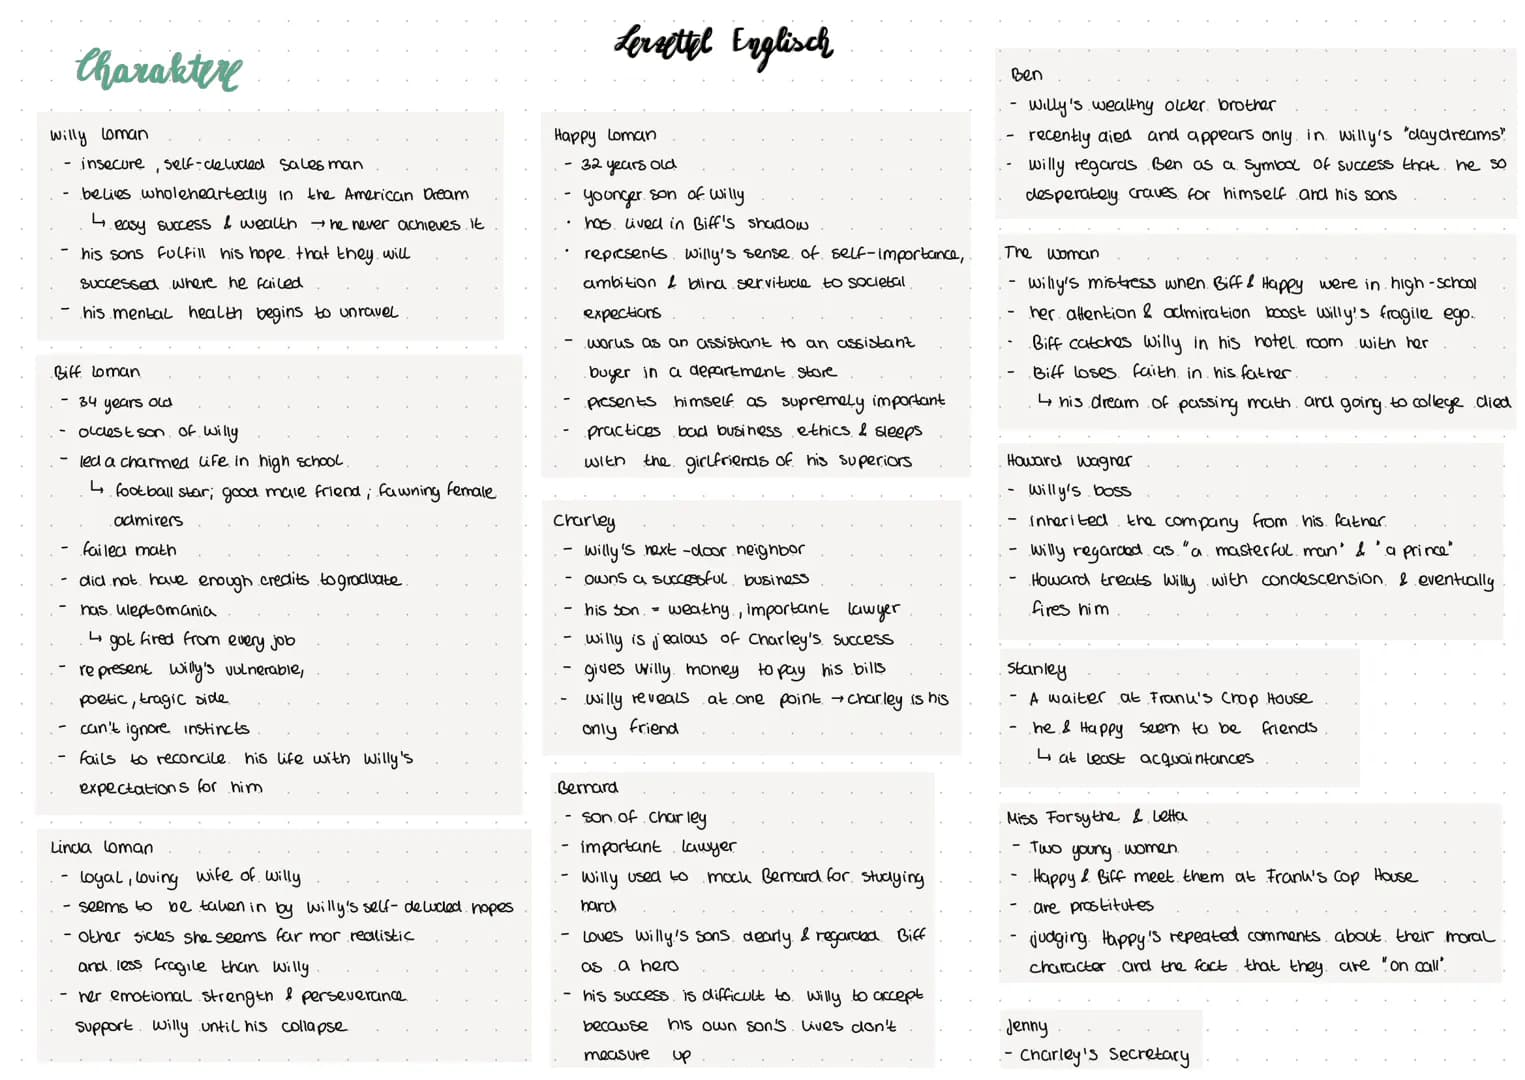 Lernzettel Englisch
Charaktere
Willy Loman
- insecure, self-deluded salesman
- belies wholeheartedly in the American Dream
↳ easy success & wealth → he never achieves it
- his sons fulfill his hope that they will
successed where he failed
- his mental health begins to unravel
Biff Loman
- 34 years old
- oldest son of Willy
- led a charmed life in high school
↳ football star; good male friend; fawning female
admirers
- failed math
- did not have enough credits to graduate
- has kleptomania
↳ got fired from every job
- represent Willy's vulnerable,
poetic, tragic side
- can't ignore instincts
- fails to reconcile his life with Willy's
expectations for him
Linda Loman
- loyal, loving wife of Willy
- seems to be taken in by Willy's self-deluded hopes
- other sides she seems far mor realistic
and less fragile than Willy
- her emotional strength & perseverance
support Willy until his collapse
Happy Loman
- 32 years old
- younger son of Willy
· has lived in Biff's shadow
· represents Willy's sense of self-importance,
ambition & blind servitude to societal
expections
- works as an assistant to an assistant
buyer in a department store
- presents himself as supremely important
- practices bad business ethics & sleeps
with the girlfriends of his superiors
Charley
- Willy's next-door neighbor
- owns a successful business
- his son = weathy, important lawyer
- Willy is jealous of Charley's success
- gives Willy money to pay his bills
- Willy reveals at one point → Charley is his
only friend
Bernard
- son of Charley
- important lawyer
- Willy used to mock Bernard for studying
hard
- loves Willy's sons dearly & regarded Biff
as a hero
- his success is difficult to Willy to accept
because his own son's lives don't
measure up
Ben
- Willy's wealthy older brother
- recently died and appears only in Willy's "daydreams"
- Willy regards Ben as a symbol of success that he so
desperately craves for himself and his sons
The Woman
- Willy's mistress when Biff & Happy were in high-school
- her attention & admiration boost Willy's fragile ego.
- Biff catches Willy in his hotel room with her
- Biff loses faith in his father
↳ his dream of passing math and going to college died
Howard Wagner
- Willy's boss
- Inherited the company from his father
- Willy regarded as "a masterful man" & "a prince"
- Howard treats Willy with condescension & eventually
fires him
Stanley
- A waiter at Frank's Chop House
- he & Happy seem to be friends
↳ at least acquaintances
Miss Forsythe & Letta
- Two young women
- Happy & Biff meet them at Frank's Cop House
- are prostitutes
- judging Happy's repeated comments about their moral
character and the fact that they are "on call".
Jenny
- Charley's Secretary